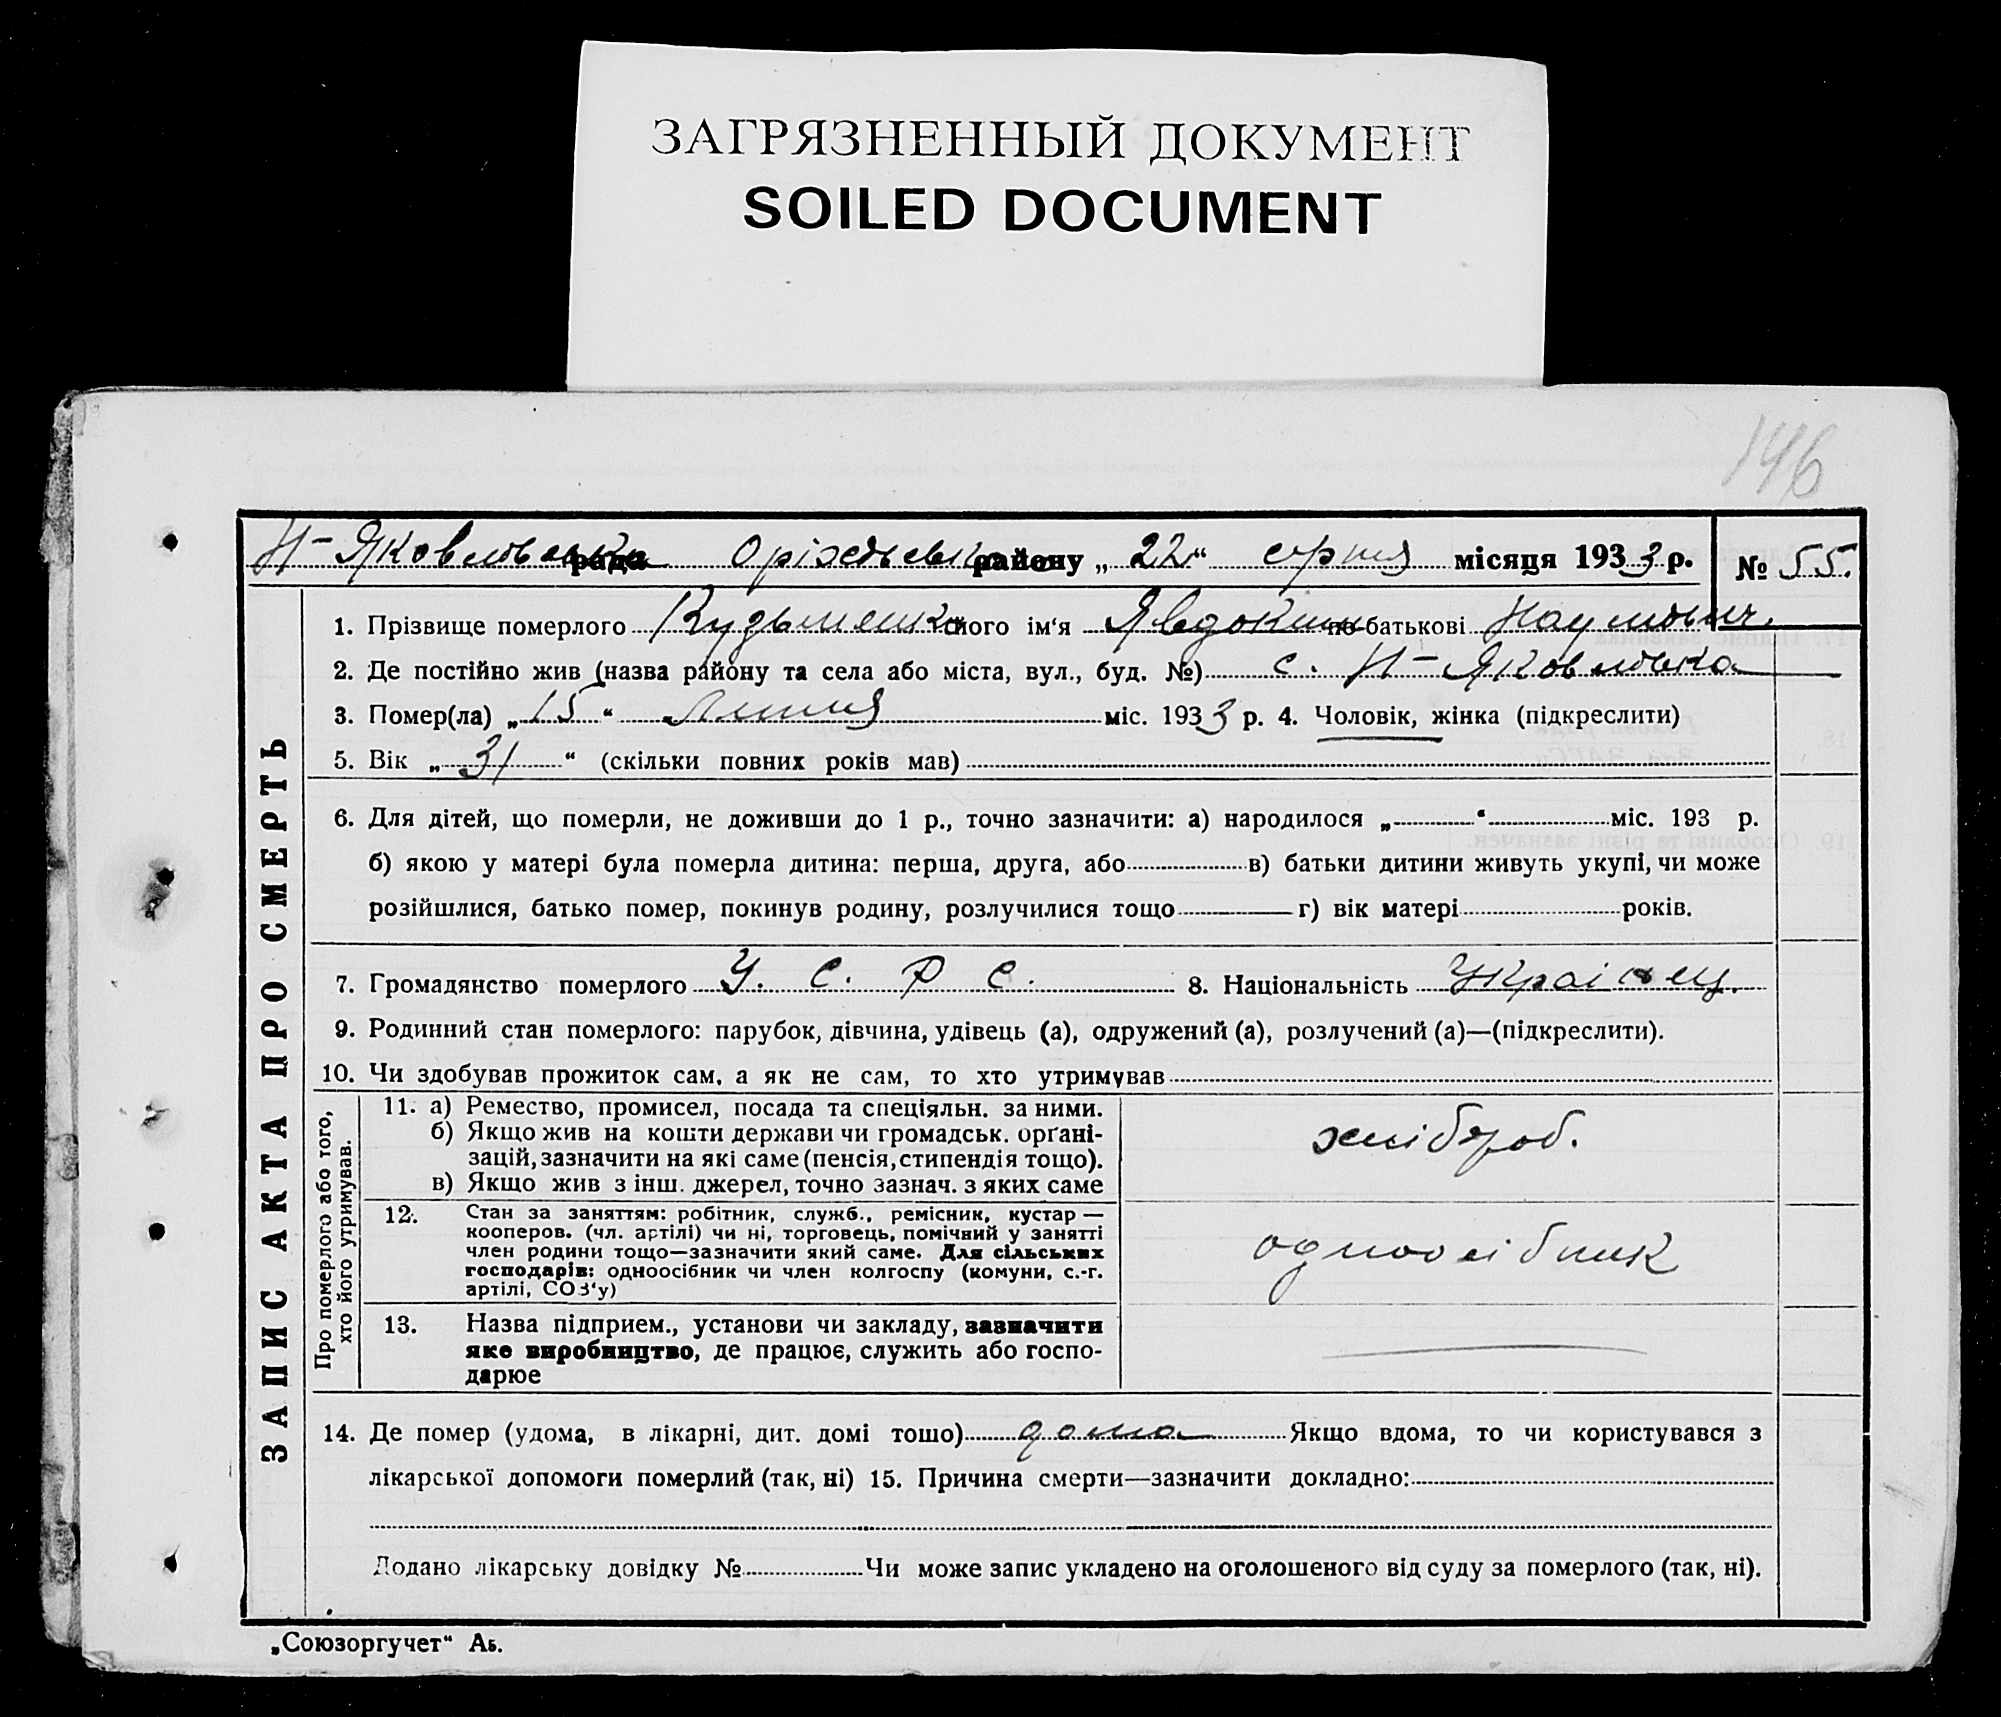 ЗАГРЯЗНЕННЫЙ ДОКУМЕНТ
SOILED DOCUMENT
146
Н-Яковлівська рада Оріхівська району „22“ серпня місяця 1933 р. № 55.
ЗАПИС АКТА ПРО СМЕРТЬ
1. Прізвище померлого Кузьменко його ім‘я Явдоким по-батькові Наумович.
2. Де постійно жив (назва району та села або міста, вул., буд. №) с. Н-Яковлівка
3. Помер(ла) „15“ Липня міс. 1933 р. 4. Чоловік, жінка (підкреслити)
5. Вік „31“ (скільки повних років мав)
6. Для дітей, що померли, не доживши до 1 р., точно зазначити: а) народилося „ “ міс. 193 р.
б) якою у матері була померла дитина: перша, друга, або в) батьки дитини живуть укупі, чи може
розійшлися, батько помер, покинув родину, розлучилися тощо г) вік матері років.
7. Громадянство померлого У. С. Р С. 8. Національність Украінец.
9. Родинний стан померлого: парубок, дівчина, удівець (а), одружений (а), розлучений (а)—(підкреслити).
10. Чи здобував прожиток сам, а як не сам, то хто утримував
Про померлого або того,
хто його утримував.
11. а) Ремество, промисел, посада та спеціяльн. за ними.
б) Якщо жив на кошти держави чи громадськ. орґані-
зацій, зазначити на які саме (пенсія, стипендія тощо).
в) Якщо жив з інш. джерел, точно зазнач. з яких саме
хлібороб.
12. Стан за заняттям: робітник, служб., ремісник, кустар—
кооперов. (чл. артілі) чи ні, торговець, помічний у занятті
член родини тощо—зазначити який саме. Для сільських
господарів: одноосібник чи член колгоспу (комуни, с.-г.
артілі, СОЗ‘у)
одноосібник
13. Назва підприєм., установи чи закладу, зазначити
яке виробництво, де працює, служить або госпо-
дарює
14. Де помер (удома, в лікарні, дит. домі тошо) дома Якщо вдома, то чи користувався з
лікарської допомоги померлий (так, ні) 15. Причина смерти—зазначити докладно:
Додано лікарську довідку № Чи може запис укладено на оголошеного від суду за померлого (так, ні).
„Союзоргучет“ Аь.